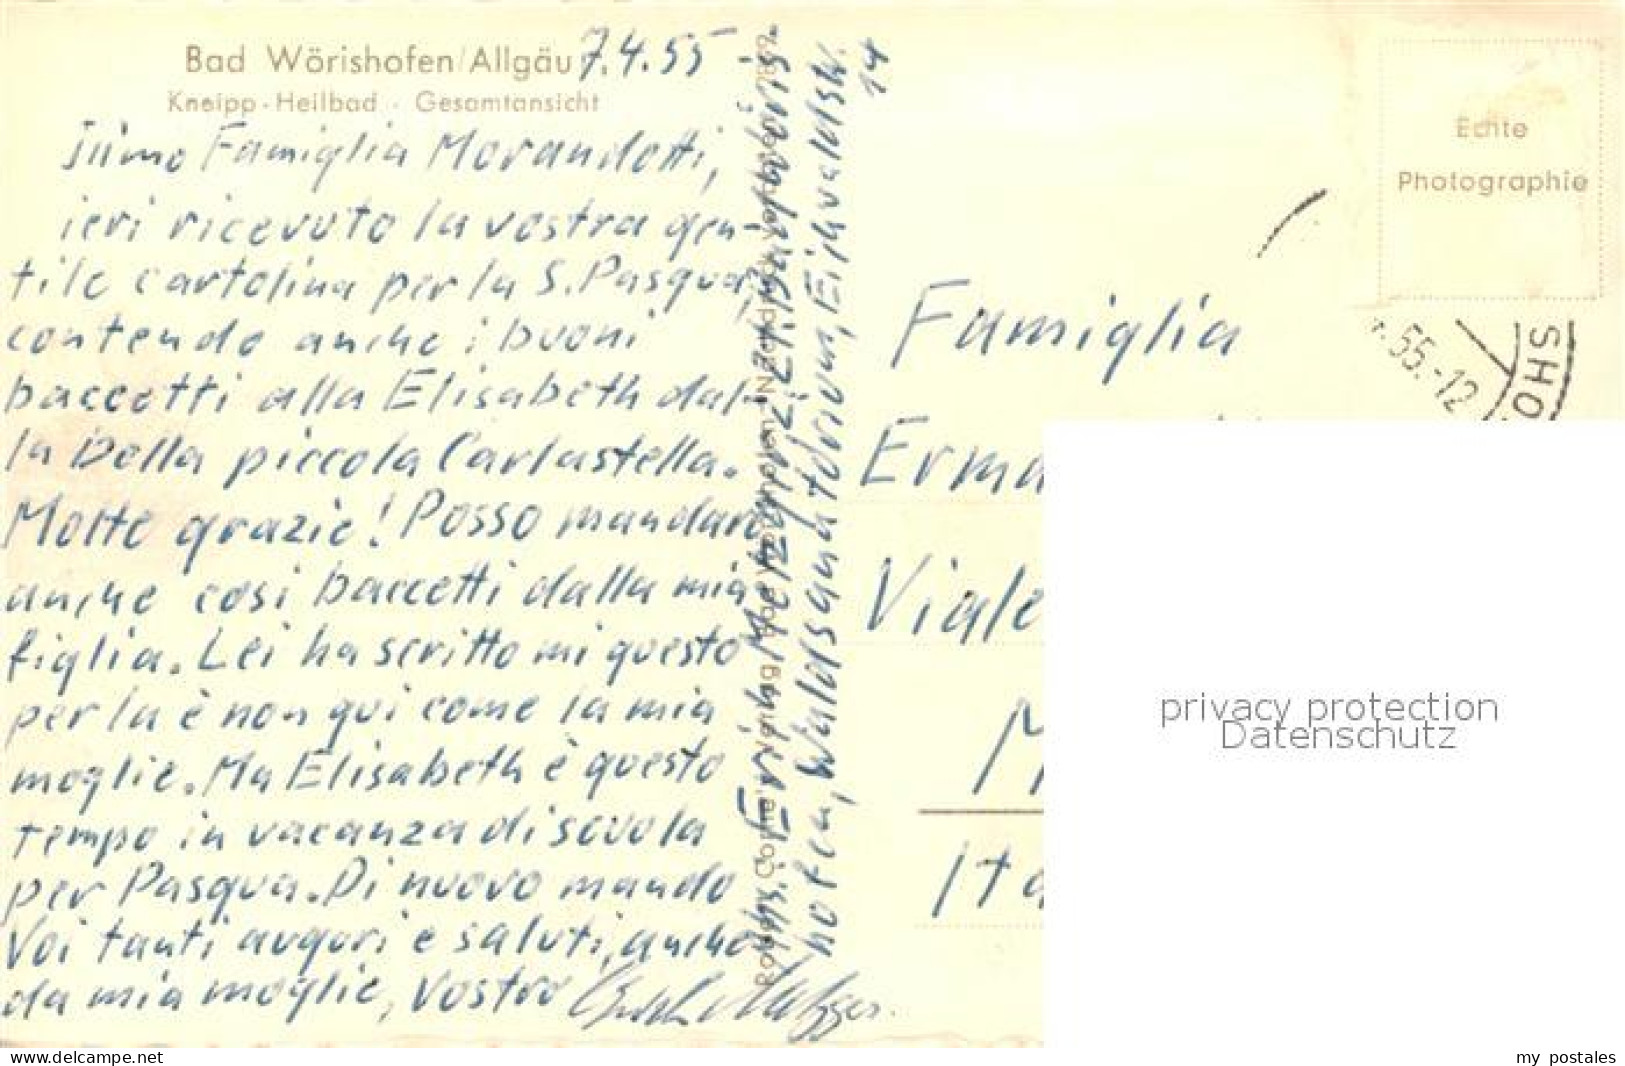 Bad Wörishofen/Allgäu 7.4.55
Kneipp-Heilbad - Gesamtansicht
Famiglia Morandotti,
ieri ricevuto la vostra gen-
tile cartolina per la S. Pasqua,
contendo anche i buoni
baccetti alla Elisabeth dal-
la bella piccola Carlastella.
Molte grazie! Posso mandare
anche cosi baccetti dalla mia
figlia. Lei ha scritto mi questo
per la è non qui come la mia
moglie. Ma Elisabeth è questo
tempo in vacanza di scuola
per Pasqua. Di nuovo mando
Voi tanti auguri e saluti, anche
da mia moglie, vostro
Erich Metzger
hofen, Waldsanatorium, Eichwaldstr.
14
Echte
Photographie
55.-12
SHO
Famiglia
Erma
Viale
M
Ita
privacy protection
Datenschutz
www.delcampe.net
my_postales